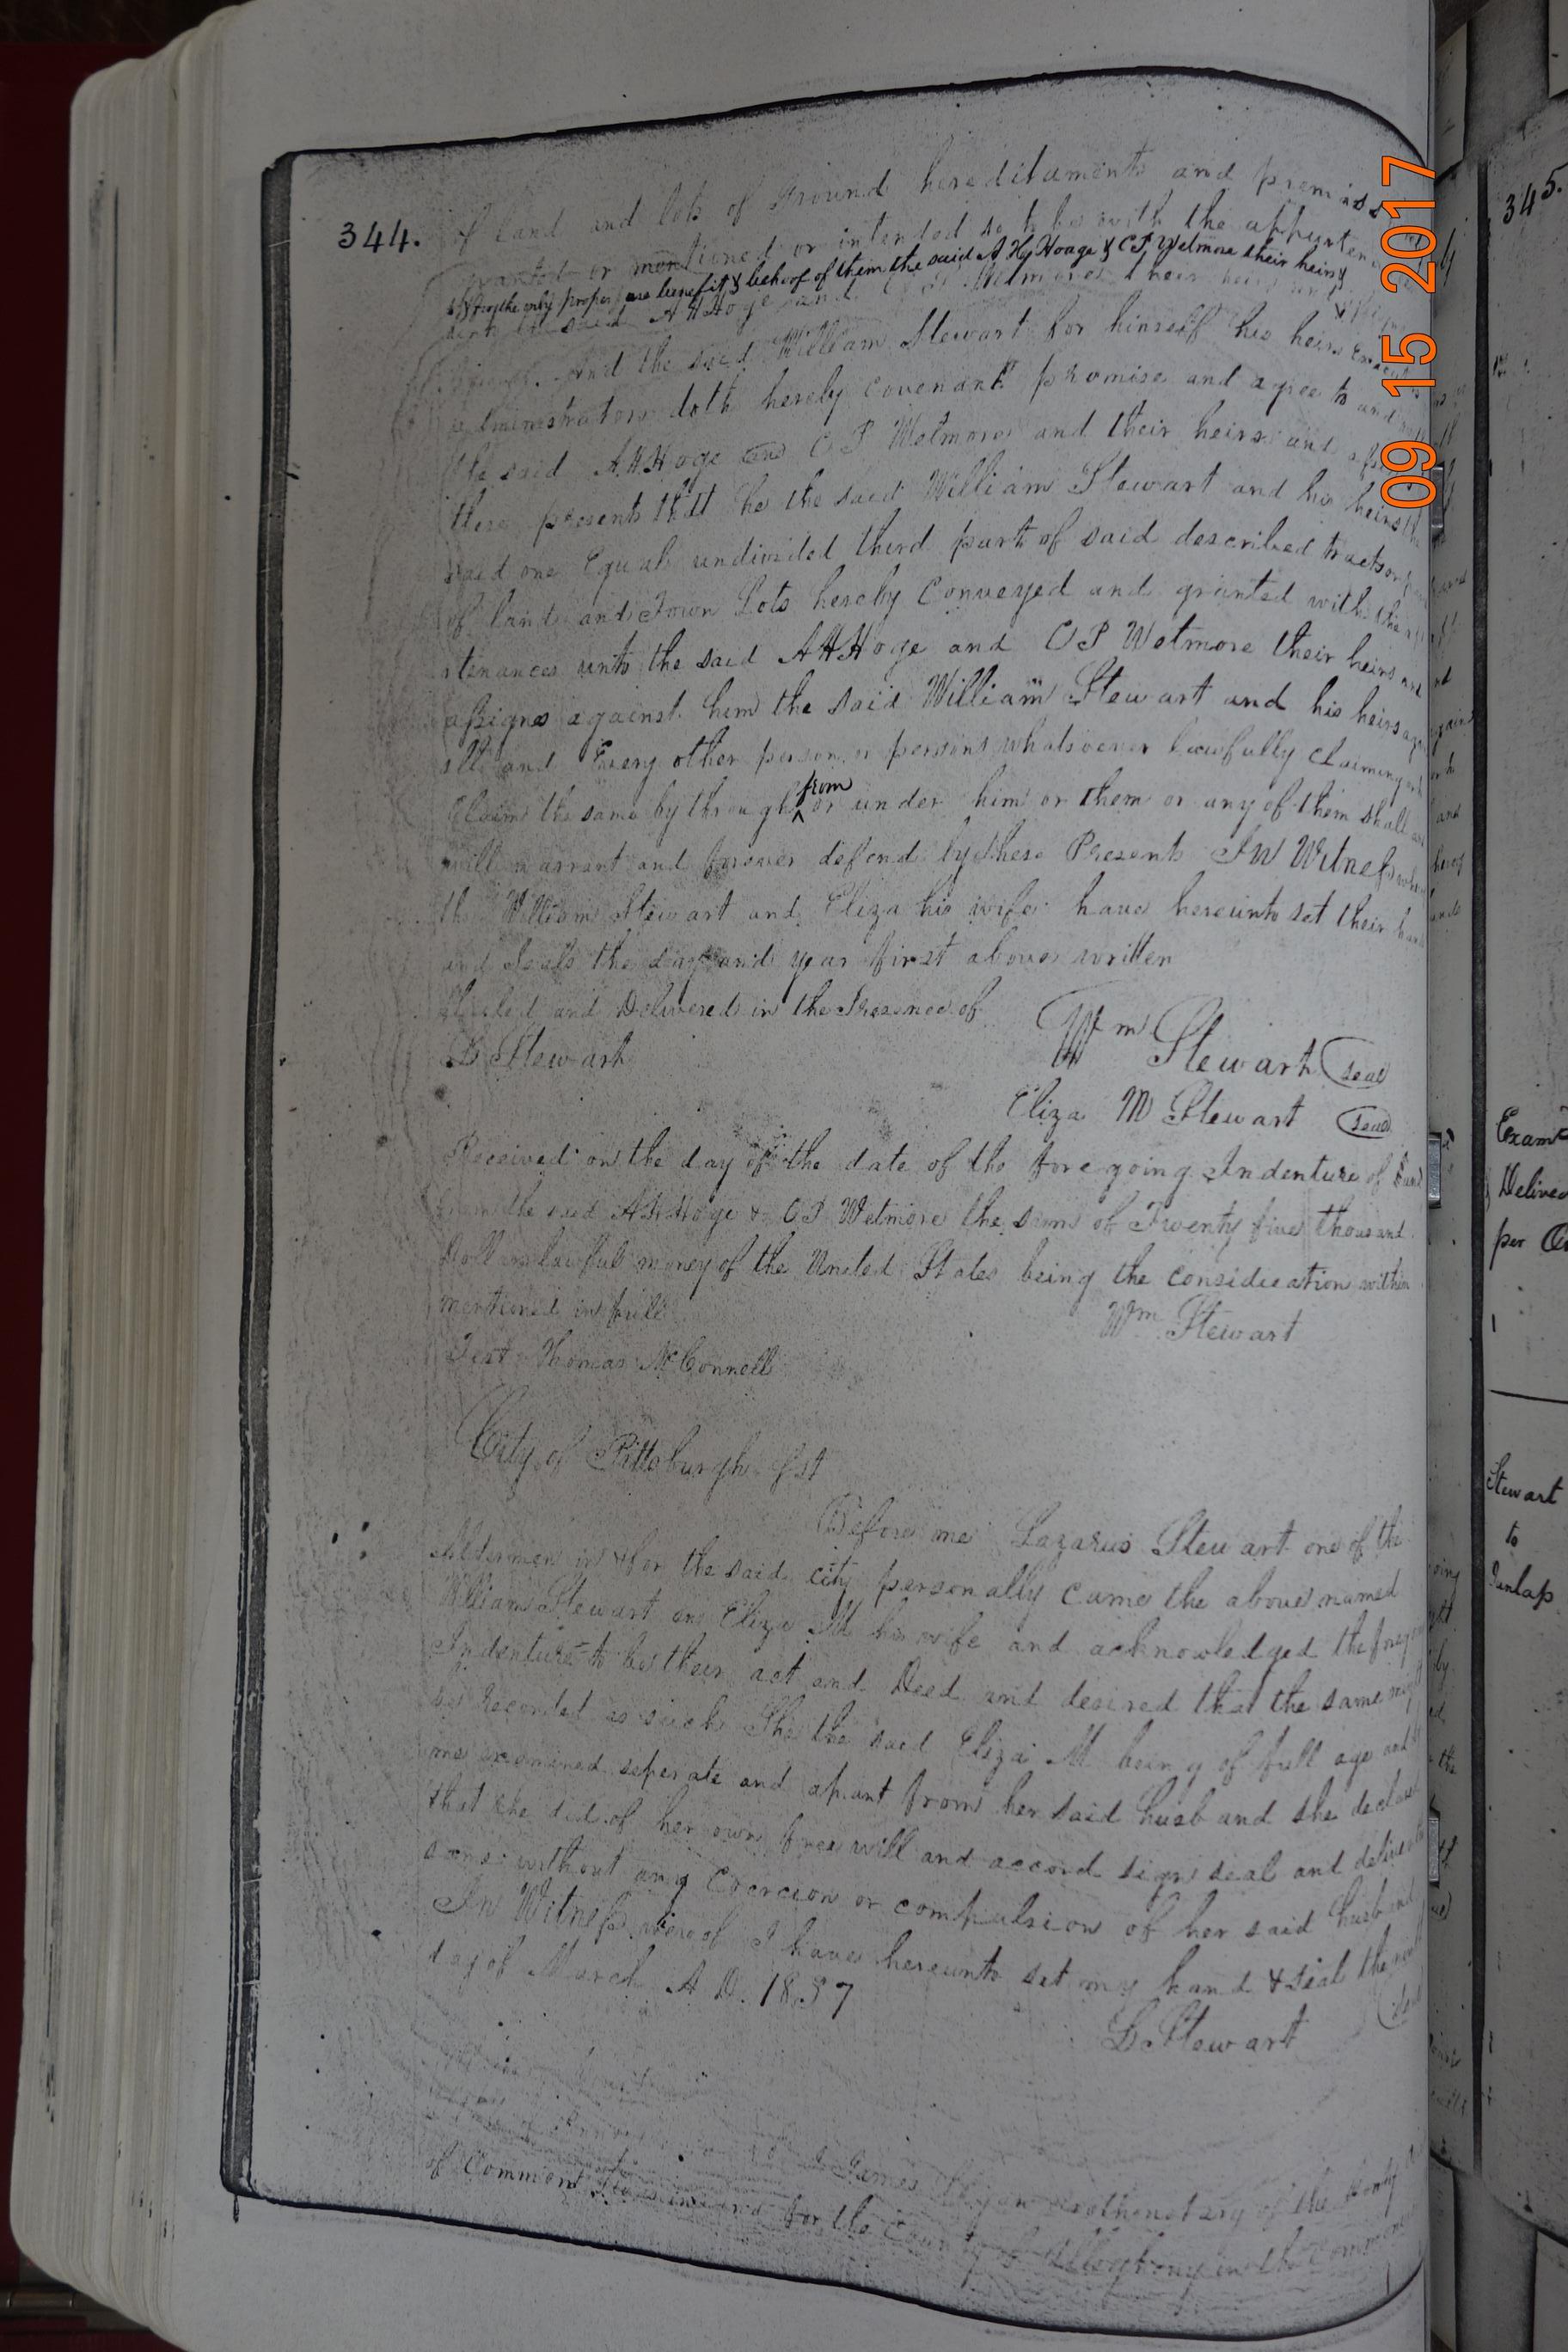 344.
of Land and lots of Ground hereditaments and premises
granted or mentioned or intended so to be with the appurten
to & for the only proper use benefit & behoof of them the said A H Hoage & C P Wetmore their heirs &
said A H Hoge and Wetmore their heirs and assigns
forever. And the said William Stewart for himself his heirs Executors
administrators doth hereby covenant promise and agree to and with
the said A H Hoge and O P Wetmore and their heirs and assigns by
these presents that he the said William Stewart and his heirs the
said one Equal undivided third part of said described tracts or
of land and Town Lots hereby Conveyed and granted with the app
rtenances unto the said A H Hoge and O P Wetmore their heirs and
assigns against him the said William Stewart and his heirs again
all and Every other person or persons whatsoever lawfully Claiming or to
Claim the same by through ^ from or under him or them or any of them shall and
will warrant and forever defend by these Presents In Witness where
the William Stewart and Eliza his wife have hereunto set their hands
and Seals the day and year first above written
Sealed and Delivered in the Presence of
L Stewart
Wm Stewart (seal)
Eliza M Stewart (seal)
Received on the day of the date of the foregoing Indenture of
from the said A H Hoge & O P Wetmore the sum of Twenty five thousand
Dollars lawful money of the United States being the consideration within
mentioned in full
Wm Stewart
Test Thomas McConnell
City of Pittsburgh Sst
Before me Lazarus Stewart one of the
Aldermen in & for the said city personally came the above named
William Stewart and Eliza M his wife and acknowledged the foreg
Indenture to be their act and Deed and desired that the same might
be Recorded as such She the said Eliza M being of full age and by
me examined seperate and apart from her said husband she declared
that she did of her own free will and accord sign seal and deliver the
same without any Coercion or compulsion of her said husband
In Witness whereof I have hereunto set my hand & seal the
day of March A D. 1837
L Stewart (seal)
I James Prothonotary of the County
of Common Pleas in and for the County of Allegheny in the Common
09 15 2017
345.
Exam
Delive
per
Stewart
to
Dunlap